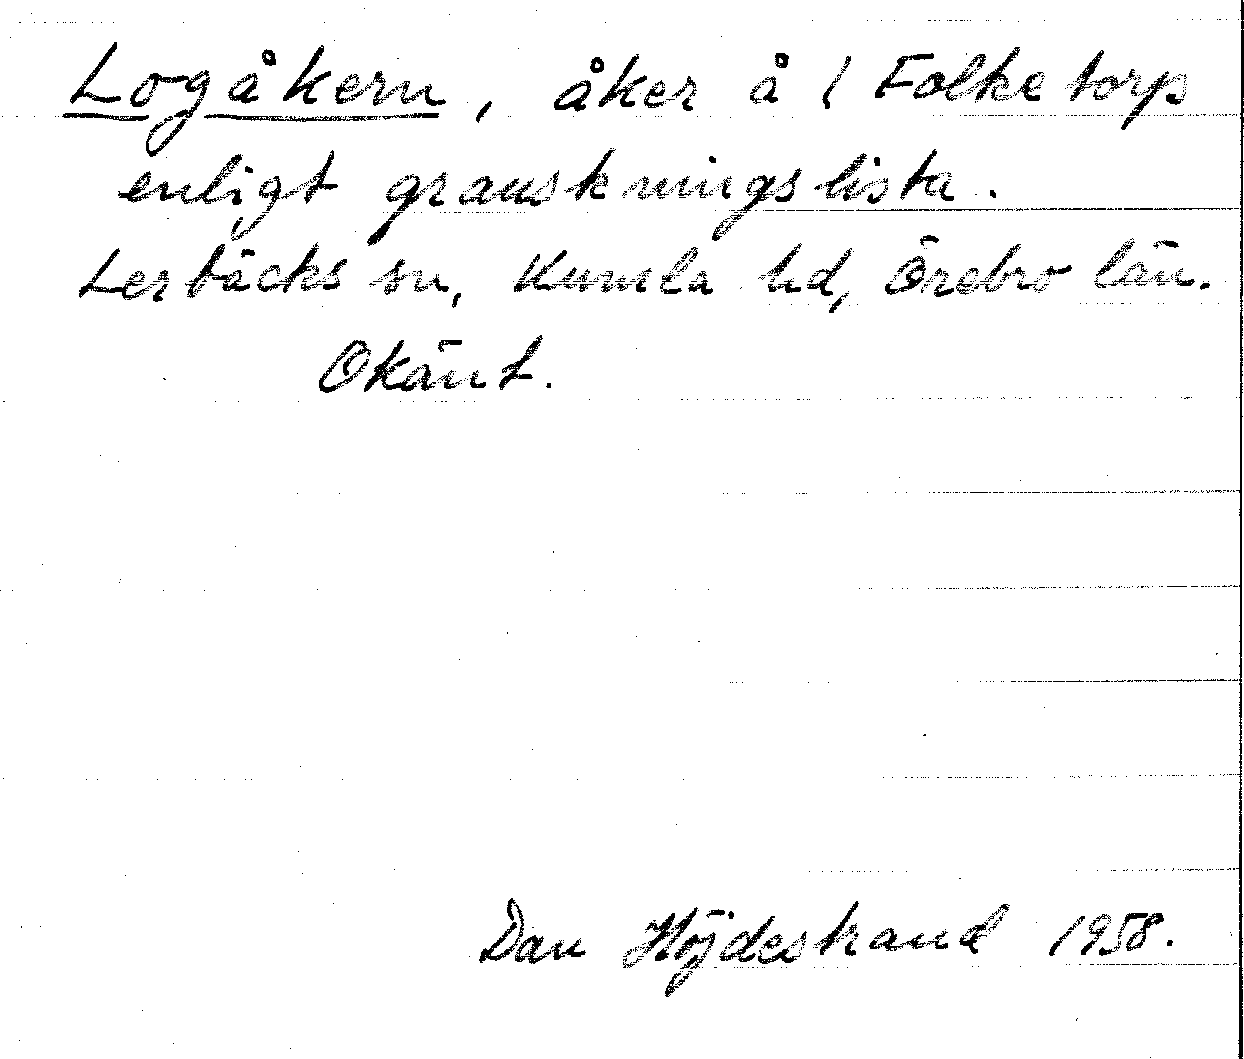 Logåkern, åker å 1 Folketorp
enligt granskningslista.
Lerbäcks sn, Kumla hd, Örebro län.
Okänt.
Dan Höjdestrand 1958.